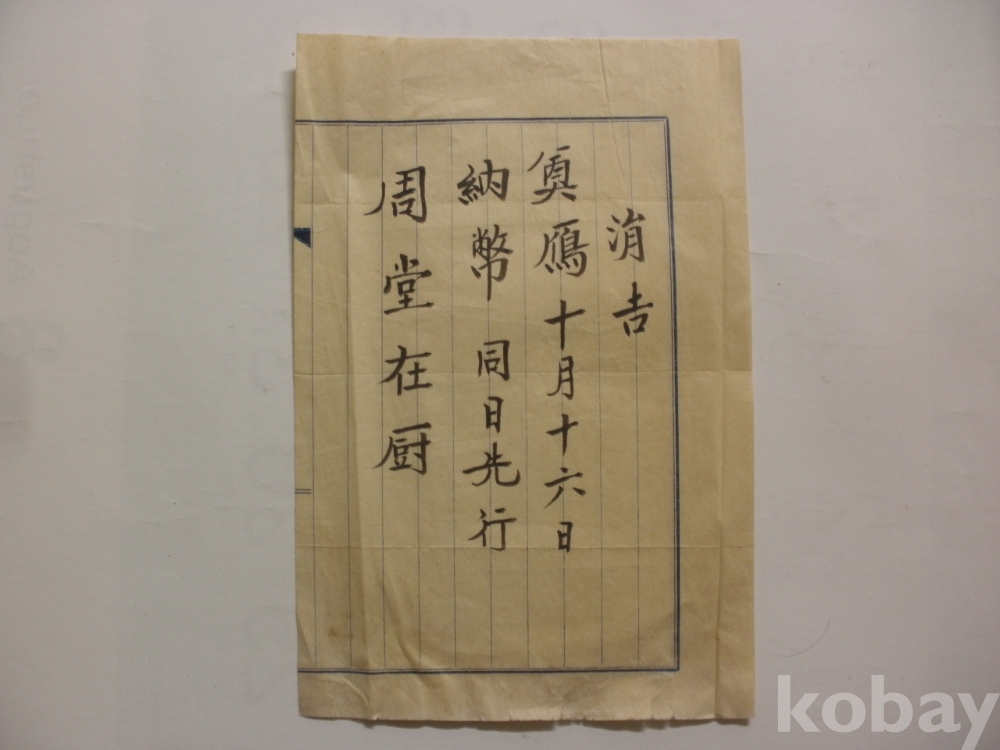 涓吉
奠鴈十月十六日
納幣 同日先行
周堂在厨
kobay